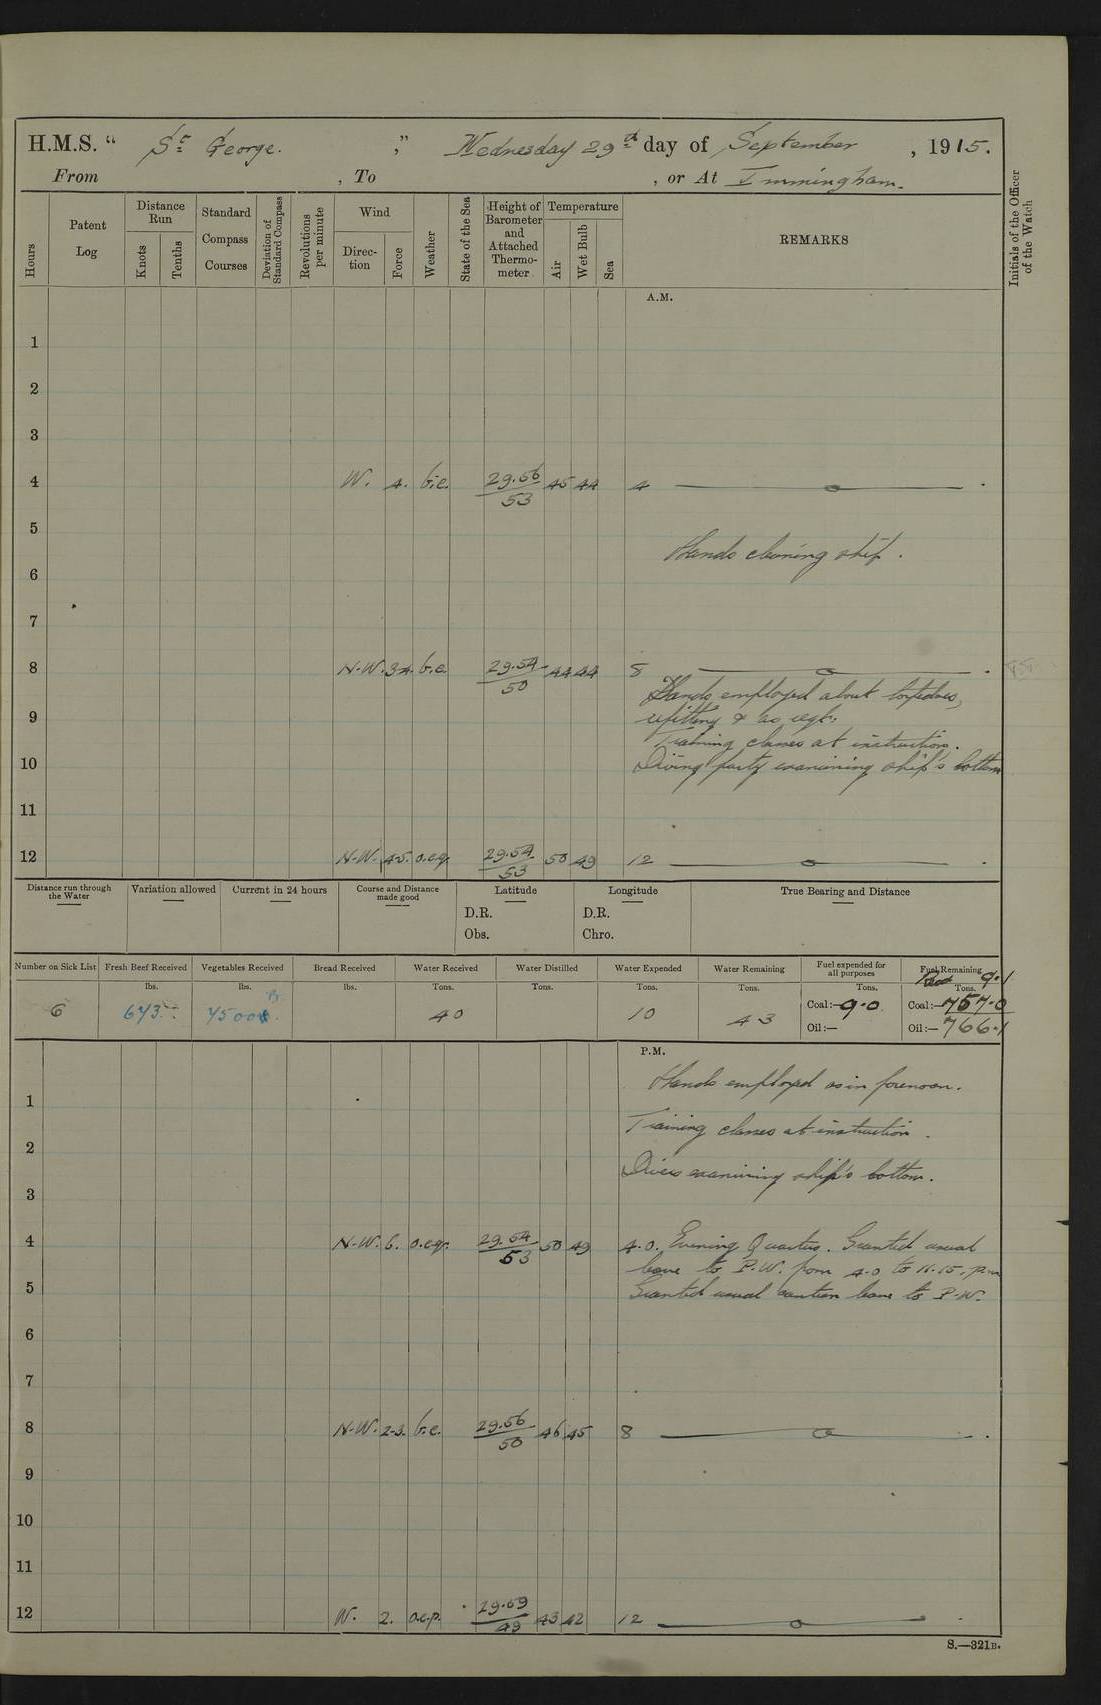 H.M.S. " St George. ," Wednesday 29th day of September , 1915.
From , To , or At Immingham.
Hours
Patent Log
Distance Run
Knots
Tenths
Standard Compass Courses
Deviation of Standard Compass
Revolutions per minute
Wind
Direction
Force
Weather
State of the Sea
Height of Barometer and Attached Thermometer
Temperature
Air
Wet Bulb
Sea
REMARKS
Initials of the Officer of the Watch
A.M.
1
2
3
4 W. 4. b.c. 29.56/53 45 44 4
5
Hands cleaning ship.
6
7
8 N.W. 3-4. b.c. 29.54/50 44 44 8
Hands employed about torpedoes,
9 refitting & as reqt.
Training classes at instruction.
10 Diving party examining ship's bottom
11
12 N.W. 4-5. o.c.q. 29.54/53 50 49 12
Distance run through the Water
Variation allowed
Current in 24 hours
Course and Distance made good
Latitude
D.R.
Obs.
Longitude
D.R.
Chro.
True Bearing and Distance
Number on Sick List
Fresh Beef Received
Vegetables Received
Bread Received
Water Received
Water Distilled
Water Expended
Water Remaining
Fuel expended for all purposes
Fuel Remaining
9.1
lbs. lbs. lbs. Tons. Tons. Tons. Tons. Tons. Tons.
6 673 40 10 43 Coal:— 9.0 Coal:— 757.0
Oil:— Oil:— 766.1
P.M.
Hands employed as in forenoon.
1
Training classes at instruction.
2
Divers examining ship's bottom.
3
4 N.W. 6. o.c.q. 29.54/53 50 49 4.0. Evening Quarters. Granted usual
leave to P.W. from 4.0 to 11.15. p.m
5 Granted usual canteen leave to P.W.
6
7
8 N.W. 2-3. b.c. 29.56/50 46 45 8
9
10
11
12 W. 2. o.c.p. 29.69/49 43 42 12
S.—321B.